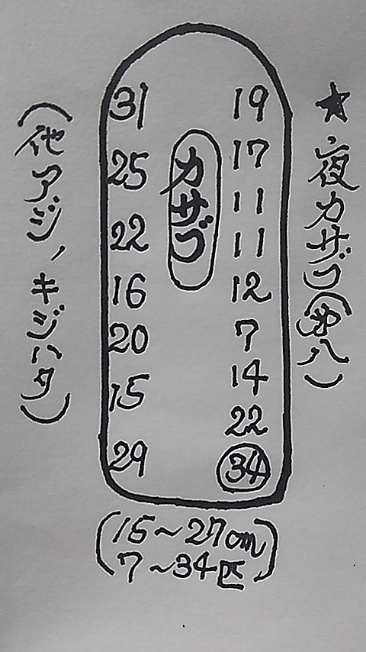 ★・夜カサゴ(第八)
19
17
11
11
12
7
14
22
34
カサゴ
31
25
22
16
20
15
29
(他アジ、キジハタ)
(15~27cm
7~34匹)